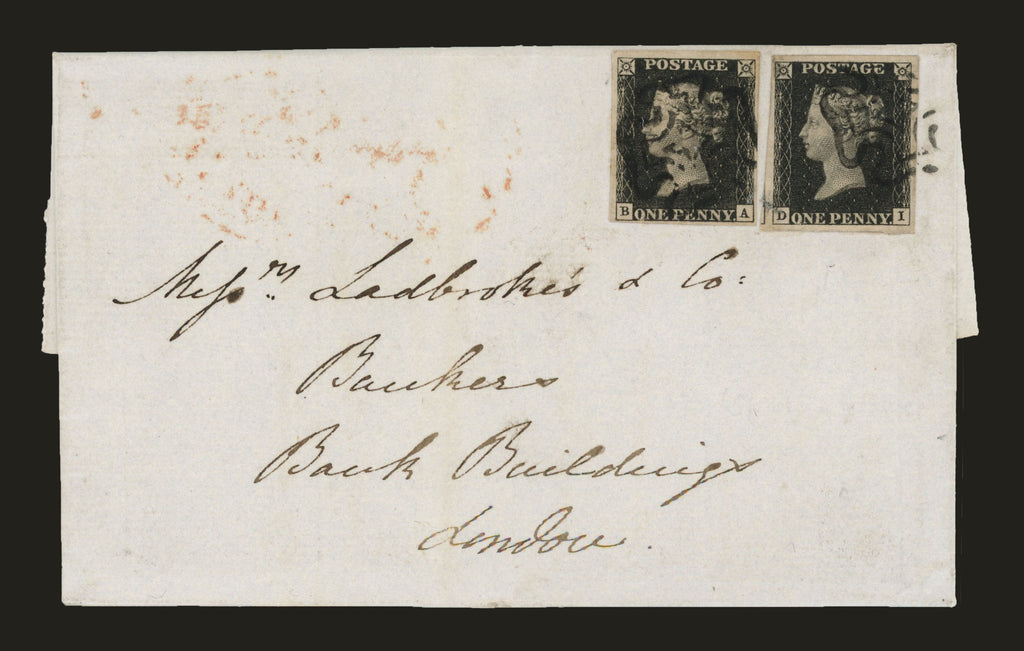 POSTAGE
B ONE PENNY A
POSTAGE
D ONE PENNY. I
Messrs. Ladbrokes & Co:
Bankers
Bank Buildings
London.